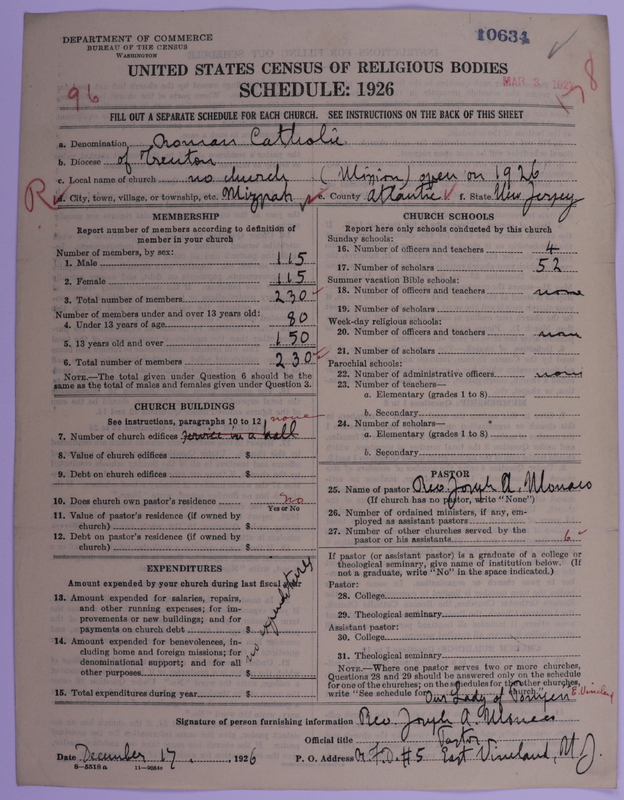 DEPARTMENT OF COMMERCE
BUREAU OF THE CENSUS
WASHINGTON
10634
UNITED STATES CENSUS OF RELIGIOUS BODIES
SCHEDULE: 1926
MAR 3
96
FILL OUT A SEPARATE SCHEDULE FOR EACH CHURCH. SEE INSTRUCTIONS ON THE BACK OF THIS SHEET
a. Denomination Roman Catholic
b. Diocese of Trenton
c. Local name of church no church (Mission) open on 1926
d. City, town, village, or township, etc. Mizpah e. County Atlantic f. State New Jersey
MEMBERSHIP
Report number of members according to definition of member in your church
Number of members, by sex:
1. Male 115
2. Female 115
3. Total number of members 230
Number of members under and over 13 years old:
4. Under 13 years of age 80
5. 13 years old and over 150
6. Total number of members 230
NOTE.—The total given under Question 6 should be the same as the total of males and females given under Question 3.
CHURCH BUILDINGS
See instructions, paragraphs 10 to 12 none
7. Number of church edifices service in a hall
8. Value of church edifices $
9. Debt on church edifices $
10. Does church own pastor's residence No
Yes or No
11. Value of pastor's residence (if owned by church) $
12. Debt on pastor's residence (if owned by church) $
EXPENDITURES
Amount expended by your church during last fiscal year
13. Amount expended for salaries, repairs, and other running expenses; for improvements or new buildings; and for payments on church debt $
14. Amount expended for benevolences, including home and foreign missions; for denominational support; and for all other purposes $
15. Total expenditures during year $
no expenditures
CHURCH SCHOOLS
Report here only schools conducted by this church
Sunday schools:
16. Number of officers and teachers 4
17. Number of scholars 52
Summer vacation Bible schools:
18. Number of officers and teachers none
19. Number of scholars
Week-day religious schools:
20. Number of officers and teachers none
21. Number of scholars
Parochial schools:
22. Number of administrative officers none
23. Number of teachers—
a. Elementary (grades 1 to 8)
b. Secondary
24. Number of scholars—
a. Elementary (grades 1 to 8)
b. Secondary
PASTOR
25. Name of pastor Rev. Joseph A. Monaco
(If church has no pastor, write "None")
26. Number of ordained ministers, if any, employed as assistant pastors
27. Number of other churches served by the pastor or his assistants 6
If pastor (or assistant pastor) is a graduate of a college or theological seminary, give name of institution below. (If not a graduate, write "No" in the space indicated.)
Pastor:
28. College
29. Theological seminary
Assistant pastor:
30. College
31. Theological seminary
NOTE.—Where one pastor serves two or more churches, Questions 28 and 29 should be answered only on the schedule for one of the churches; on the schedules for the other churches, write "See schedule for Our Lady of Pompeii church." E. Vineland
Signature of person furnishing information Rev. Joseph A. Monaco
Official title Pastor
Date December 17, 1926 P. O. Address R.F.D. #5 East Vineland, N.J.
8—5518a